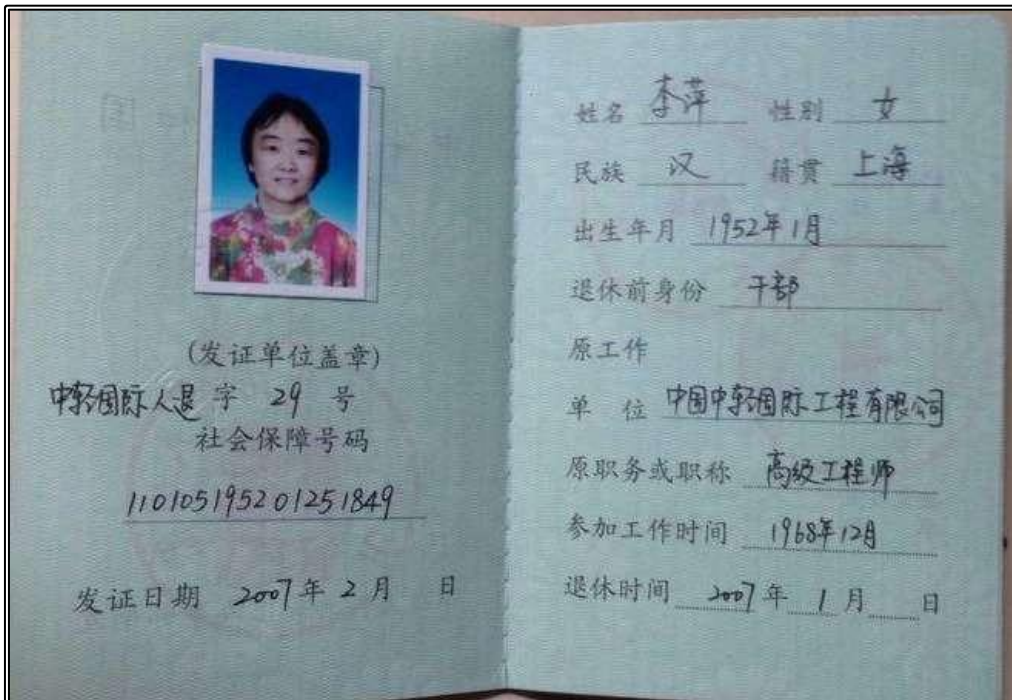 (发证单位盖章)
中轻国际人退字 29 号
社会保障号码
110105195201251849
发证日期 2007年 2 月 日
姓名 李萍 性别 女
民族 汉 籍贯 上海
出生年月 1952年1月
退休前身份 干部
原工作
单 位 中国中轻国际工程有限公司
原职务或职称 高级工程师
参加工作时间 1968年12月
退休时间 2007年 1 月 日